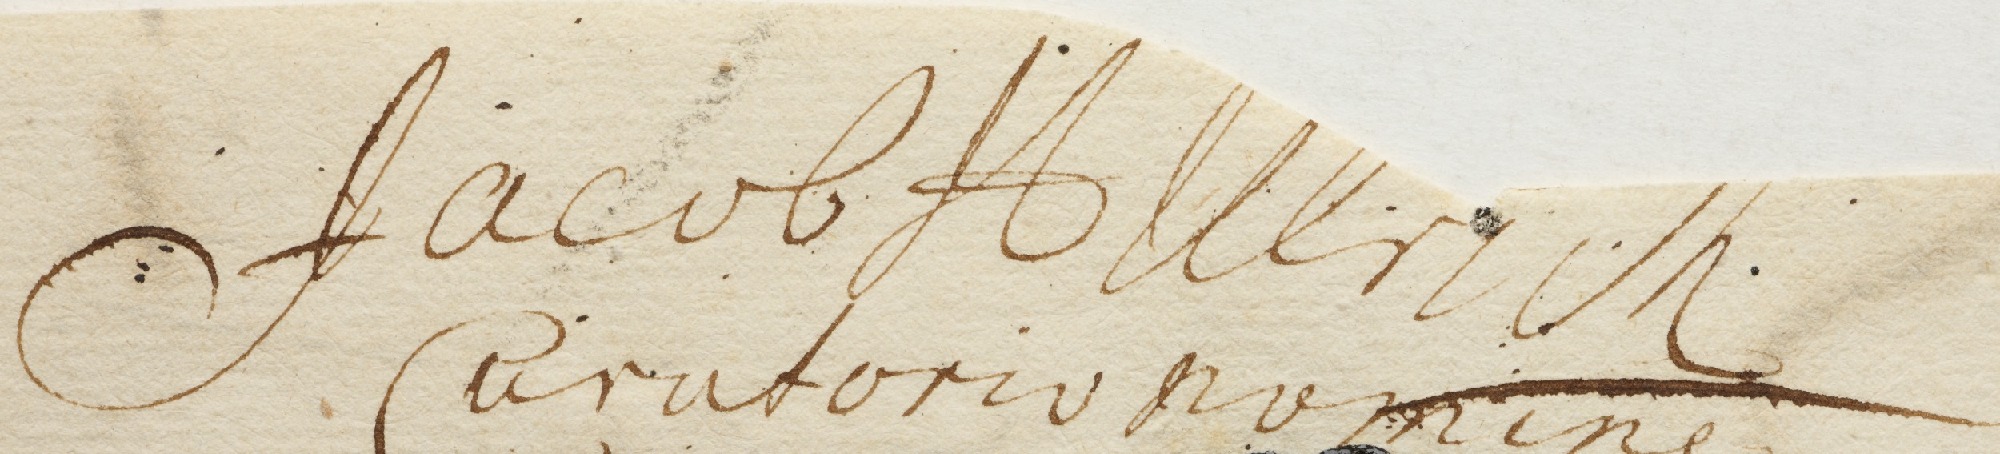 Jacob H Ulrich
Curatorio nomine